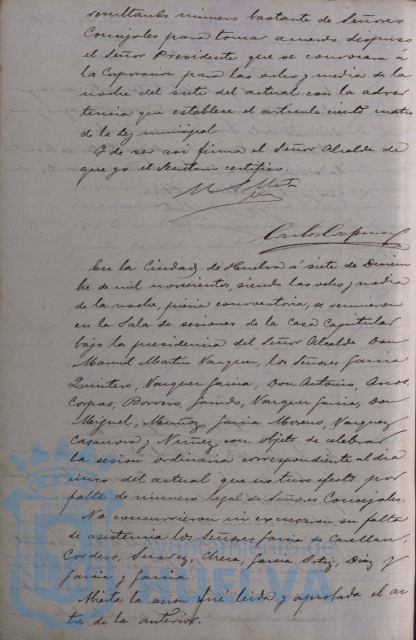 resultando número bastante de Señores
Concejales para tomar acuerdo, dispuso
el Señor Presidente que se convocara á
la Corporación para las ocho y media de la
noche del siete del actual con la adver
tencia que establece el artículo ciento cuatro
de la Ley municipal
Y de ser así firma el Señor Alcalde de
que yo el Secretario certifico.
En la Ciudad de Huelva á siete de Diciem
bre de mil novecientos, siendo las ocho y media
de la noche, previa convocatoria, se reunieron
en la Sala de sesiones de la Casa Capitular
bajo la presidencia del Señor Alcalde Don
Manuel Mateo Vazquez, los Señores Garcia
Quintero, Vazquez Garcia, Don Antonio,
Corpas, Borrero, Garrido, Vazquez Garcia, Don
Miguel, Muñoz, Garcia Moreno, Vazquez
Casanova y Nuñez con objeto de celebrar
la sesión ordinaria correspondiente al dia
cinco del actual que no tuvo efecto por
falta de número legal de Señores Concejales.
No concurrieron ni excusaron su falta
de asistencia los Señores Garcia
Cordero, Suarez, Checa, Garcia Ortiz, Diaz y
Garcia y Garcia
Abierta la sesión fué leida y aprobada el ac
ta de la anterior.
Ayuntamiento de
HUELVA